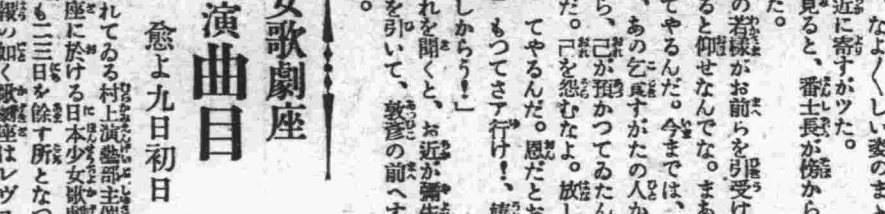 なよ〳〵しい姿のま
近に寄すがツた。
見ると、番士長が傍から
た。
の若様がお前らを引受け
ると仰せなんでな。まあ
てやるんだ。今までは、
、あの乞食すがたの人か
ら、己が預かつてゐたん
だ。己を怨むなよ。放し
てやるんだ。恩だとお
「もつてさア行け！、
しからう！」
れを聞くと、お近が
を引いて、敦彦の前へす
。
女歌劇座
演曲目
愈よ九日初日
れてゐる村上演藝部主催
座に於ける日本少女歌劇
も二三日を餘す所となつ
報の如く歌劇座はレヴ